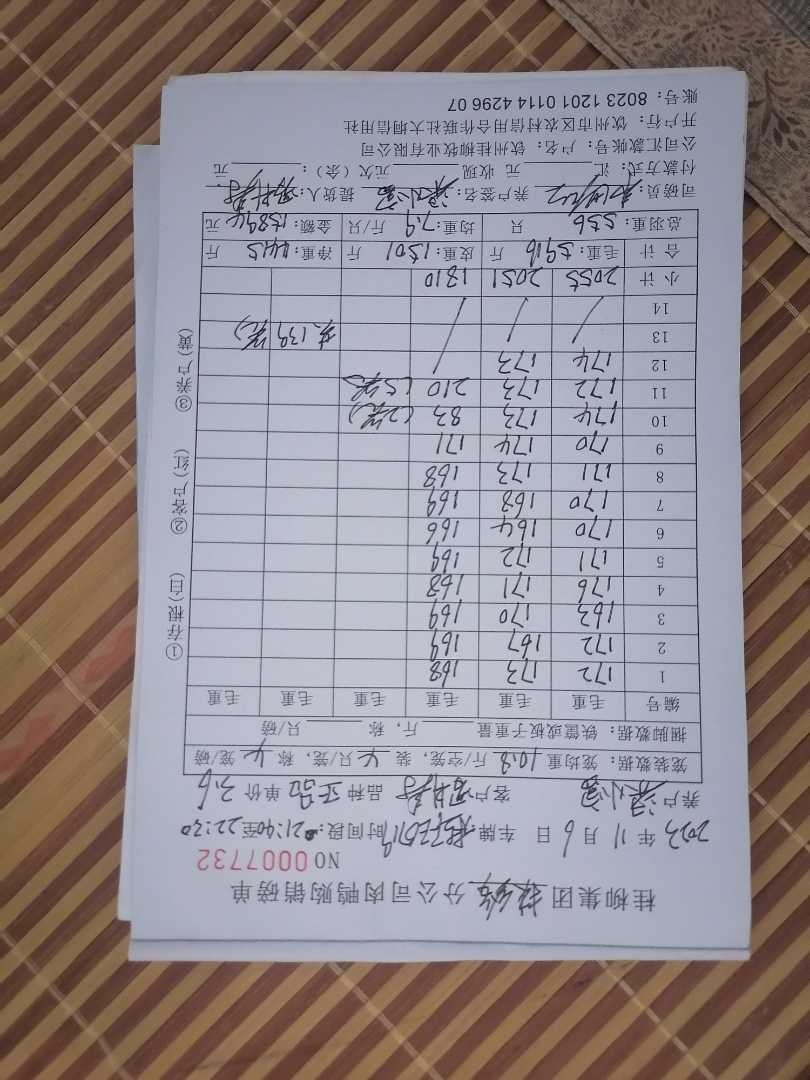 桂柳集团 分公司肉鸭购销磅单
NO 0007732
2023 年 11 月 6 日 车牌: 时间段: 21:40至22:20
养户 客户 品种 正品 单价 3.6
笼装数据: 笼均重 10.8 斤/空笼, 装 4 只/笼, 称 4 笼/磅
捆脚数据: 铁筐或板子重量 斤, 称 只/磅
编号 毛重 毛重 毛重 毛重 毛重 毛重
1 172 173 168
2 172 167 169
3 163 170 169
4 176 171 168
5 171 172 169
6 170 164 166
7 170 168 169
8 171 173 168
9 170 174 171
10 174 173 83 (2笼)
11 172 173 210 (5笼)
12 174 173
13 共139笼)
14
小计 2055 2051 1810
合计 毛重: 5916 斤 皮重: 1501 斤 净重: 4415 斤
总羽重: 556 只 均重: 7.9 斤/只 金额: 15894 元
司磅员: 养户签名: 提货人:
付款方式: 汇 元 收现 元欠(余): 元
公司汇款帐号: 户名: 钦州桂柳牧业有限公司
开户行: 钦州市区农村信用合作联社大垌信用社
账号: 8023 1201 0114 4296 07
①存根(白) ②客户(红) ③养户(黄)